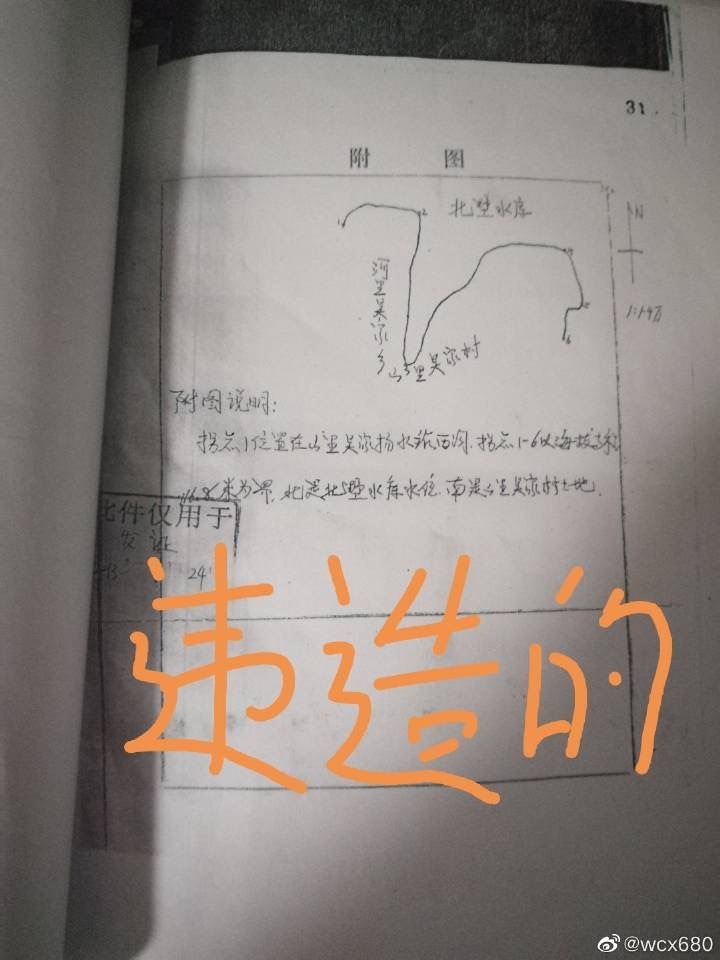 31.
附 图
1 2 北墅水库
N
河里吴家乡
4
5
6
1:1.4万
山里吴家村
附图说明:
拐点1位置在山里吴家扬水站西河.拐点1-6以海拔高程
米为界,北是北墅水库水位,南是山里吴家村土地.
此件仅用于
发证
24
违造的
@wcx680